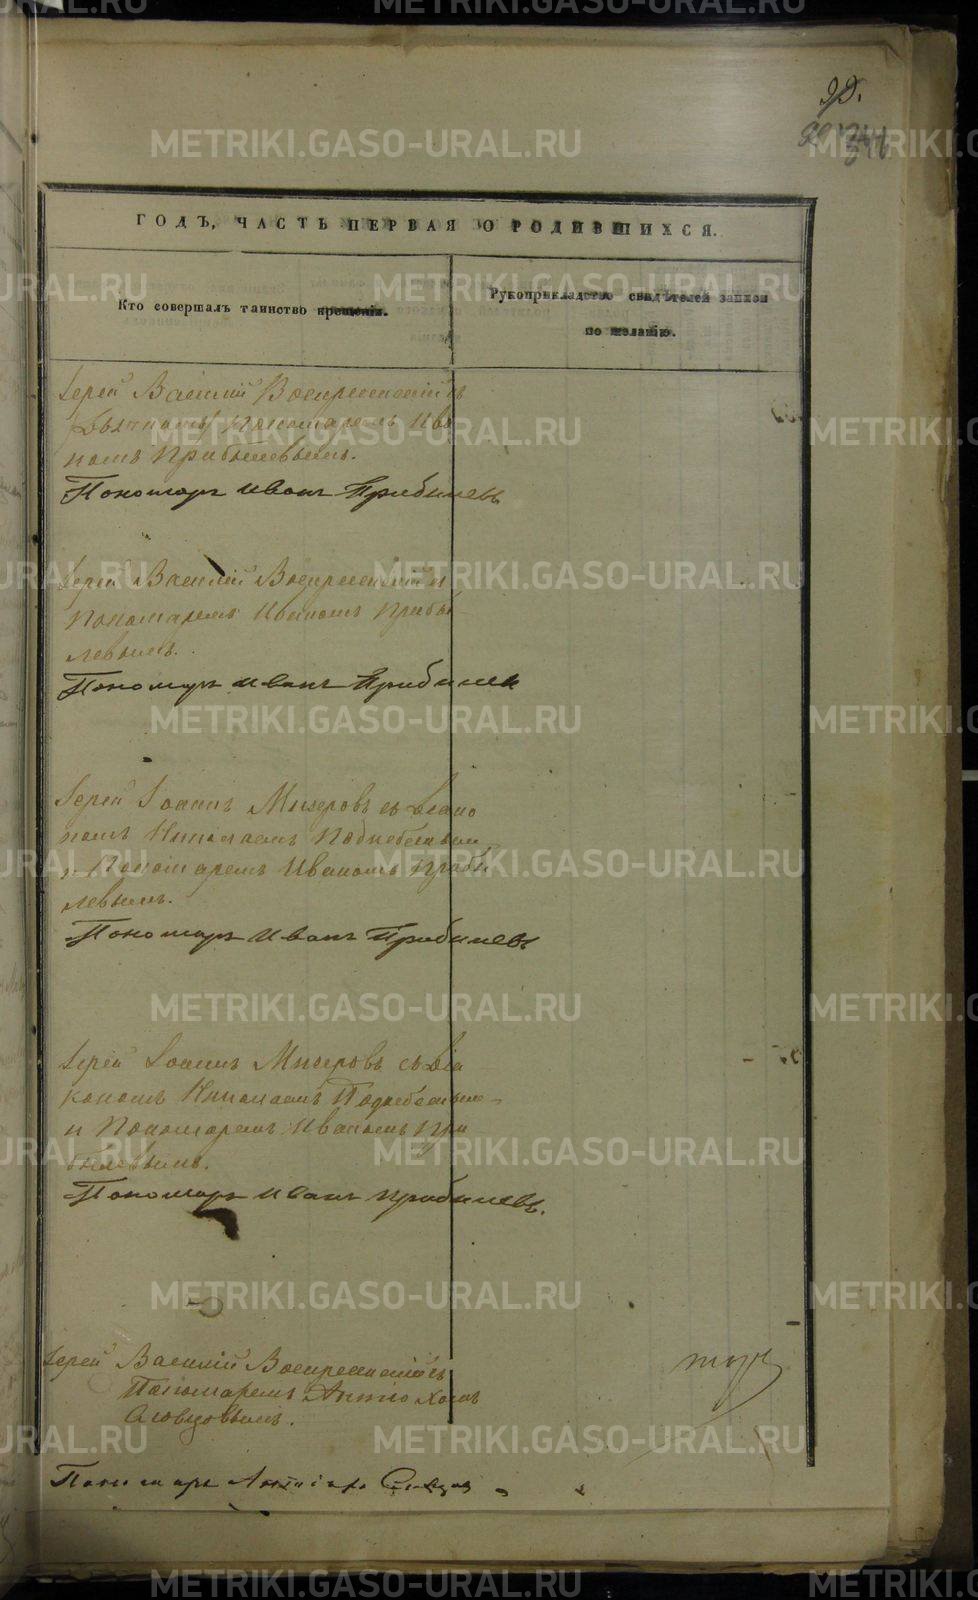 99.
ГОДЪ, ЧАСТЬ ПЕРВАЯ О РОДИВШИХСЯ.
Кто совершалъ таинство крещенія.
Рукоприкладство свидѣтелей записи
по желанію.
Іерей Василій Воскресенскій съ
пономаремъ Ива
номъ Прибылевымъ.
Пономарь Иванъ Прибылевъ
Іерей Василій Воскресенскій и
Пономаремъ Иваномъ Прибы-
левымъ.
Пономарь Иванъ Прибылевъ
Іерей Іоаннъ Мизеровъ съ Діако
номъ Николаемъ
и Пономаремъ Иваномъ Прибы
левымъ.
Пономарь Иванъ Прибылевъ
Іерей Іоаннъ Мизеровъ съ Діа
кономъ Николаемъ
и Пономаремъ Иваномъ При
былевымъ.
Пономарь Иванъ Прибылевъ.
Іерей Василій Воскресенскій съ
Пономаремъ Антіохомъ
Словцовымъ.
Пономарь Антіохъ Словцов
METRIKI.GASO-URAL.RU